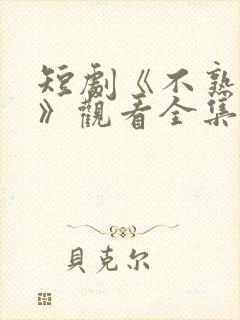 短劇《不熟
》觀看全集
貝克尔